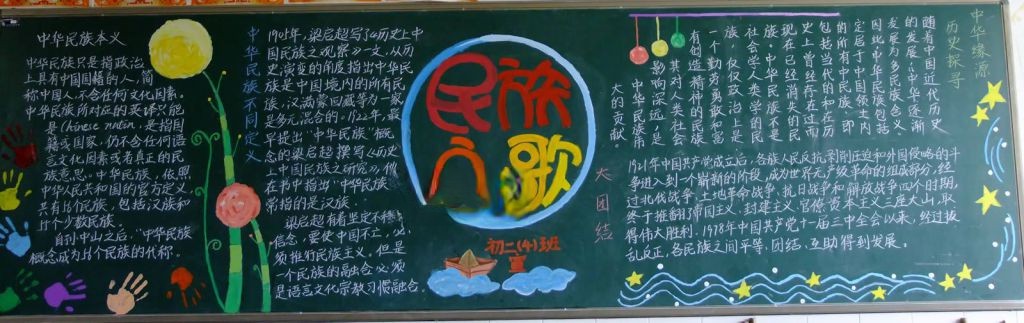 中华民族本义
中华民族只是指政治
上具有中国国籍的人,简
称中国人,不含任何文化因素。
中华民族所对应的英译只能
是Chinese nation,是指国
籍或国家,仍不含任何语
言文化因素或者真正的民
族意思。中华民族,依照
中华人民共和国的官方定义,
共有56个民族,包括汉族和
55个少数民族。
自孙中山之后,“中华民族
概念成为56个民族的代称。
中华民族不同定义
1905年,梁启超写了《历史上中
国民族之观察》一文,从历
史演变的角度指出中华民
族是中国境内的所有民
族,汉满蒙回藏等为一家
是多元混合的。1922年,最
早提出“中华民族”概
念的梁启超撰写《历史
上中国民族之研究》,他
在书中指出“中华民族
常指的是汉族
梁启超有着坚定不移
信念,要使中国不亡,必
须推行民族主义。但是
一个民族的融合必须
是语言文化宗教习惯融合。
民族
之歌
初二(4)班
宣
大团结
中华缘源
历史探寻
随着中国近代历史
的发展,中华逐渐
发展为多民族含义,
因此中华民族包括
定居于中国领土内
的所有中民族,即
包括当代的和在历
史上曾经存在过而
现在已经消失的民
族。中华民族不是
社会学人类学的民
族,仅仅政治上是
一个勤劳勇敢和富
有创造精神的民族
其对人类社会
影响深远,是
中华民族常
大的贡献。
1921年中国共产党成立后,各族人民反抗剥削压迫和外国侵略的斗
争进入到一个崭新的阶段,成为世界无产级革命的组成部分,经
过北伐战争、土地革命战争、抗日战争和解放战争四个时期,
终于推翻了帝国主义、封建主义、官僚资本主义三座大山,取
得伟大胜利。1978年中国共产党十一届三中全会以来,经过拨
乱反正,各民族之间平等、团结、互助得到发展。